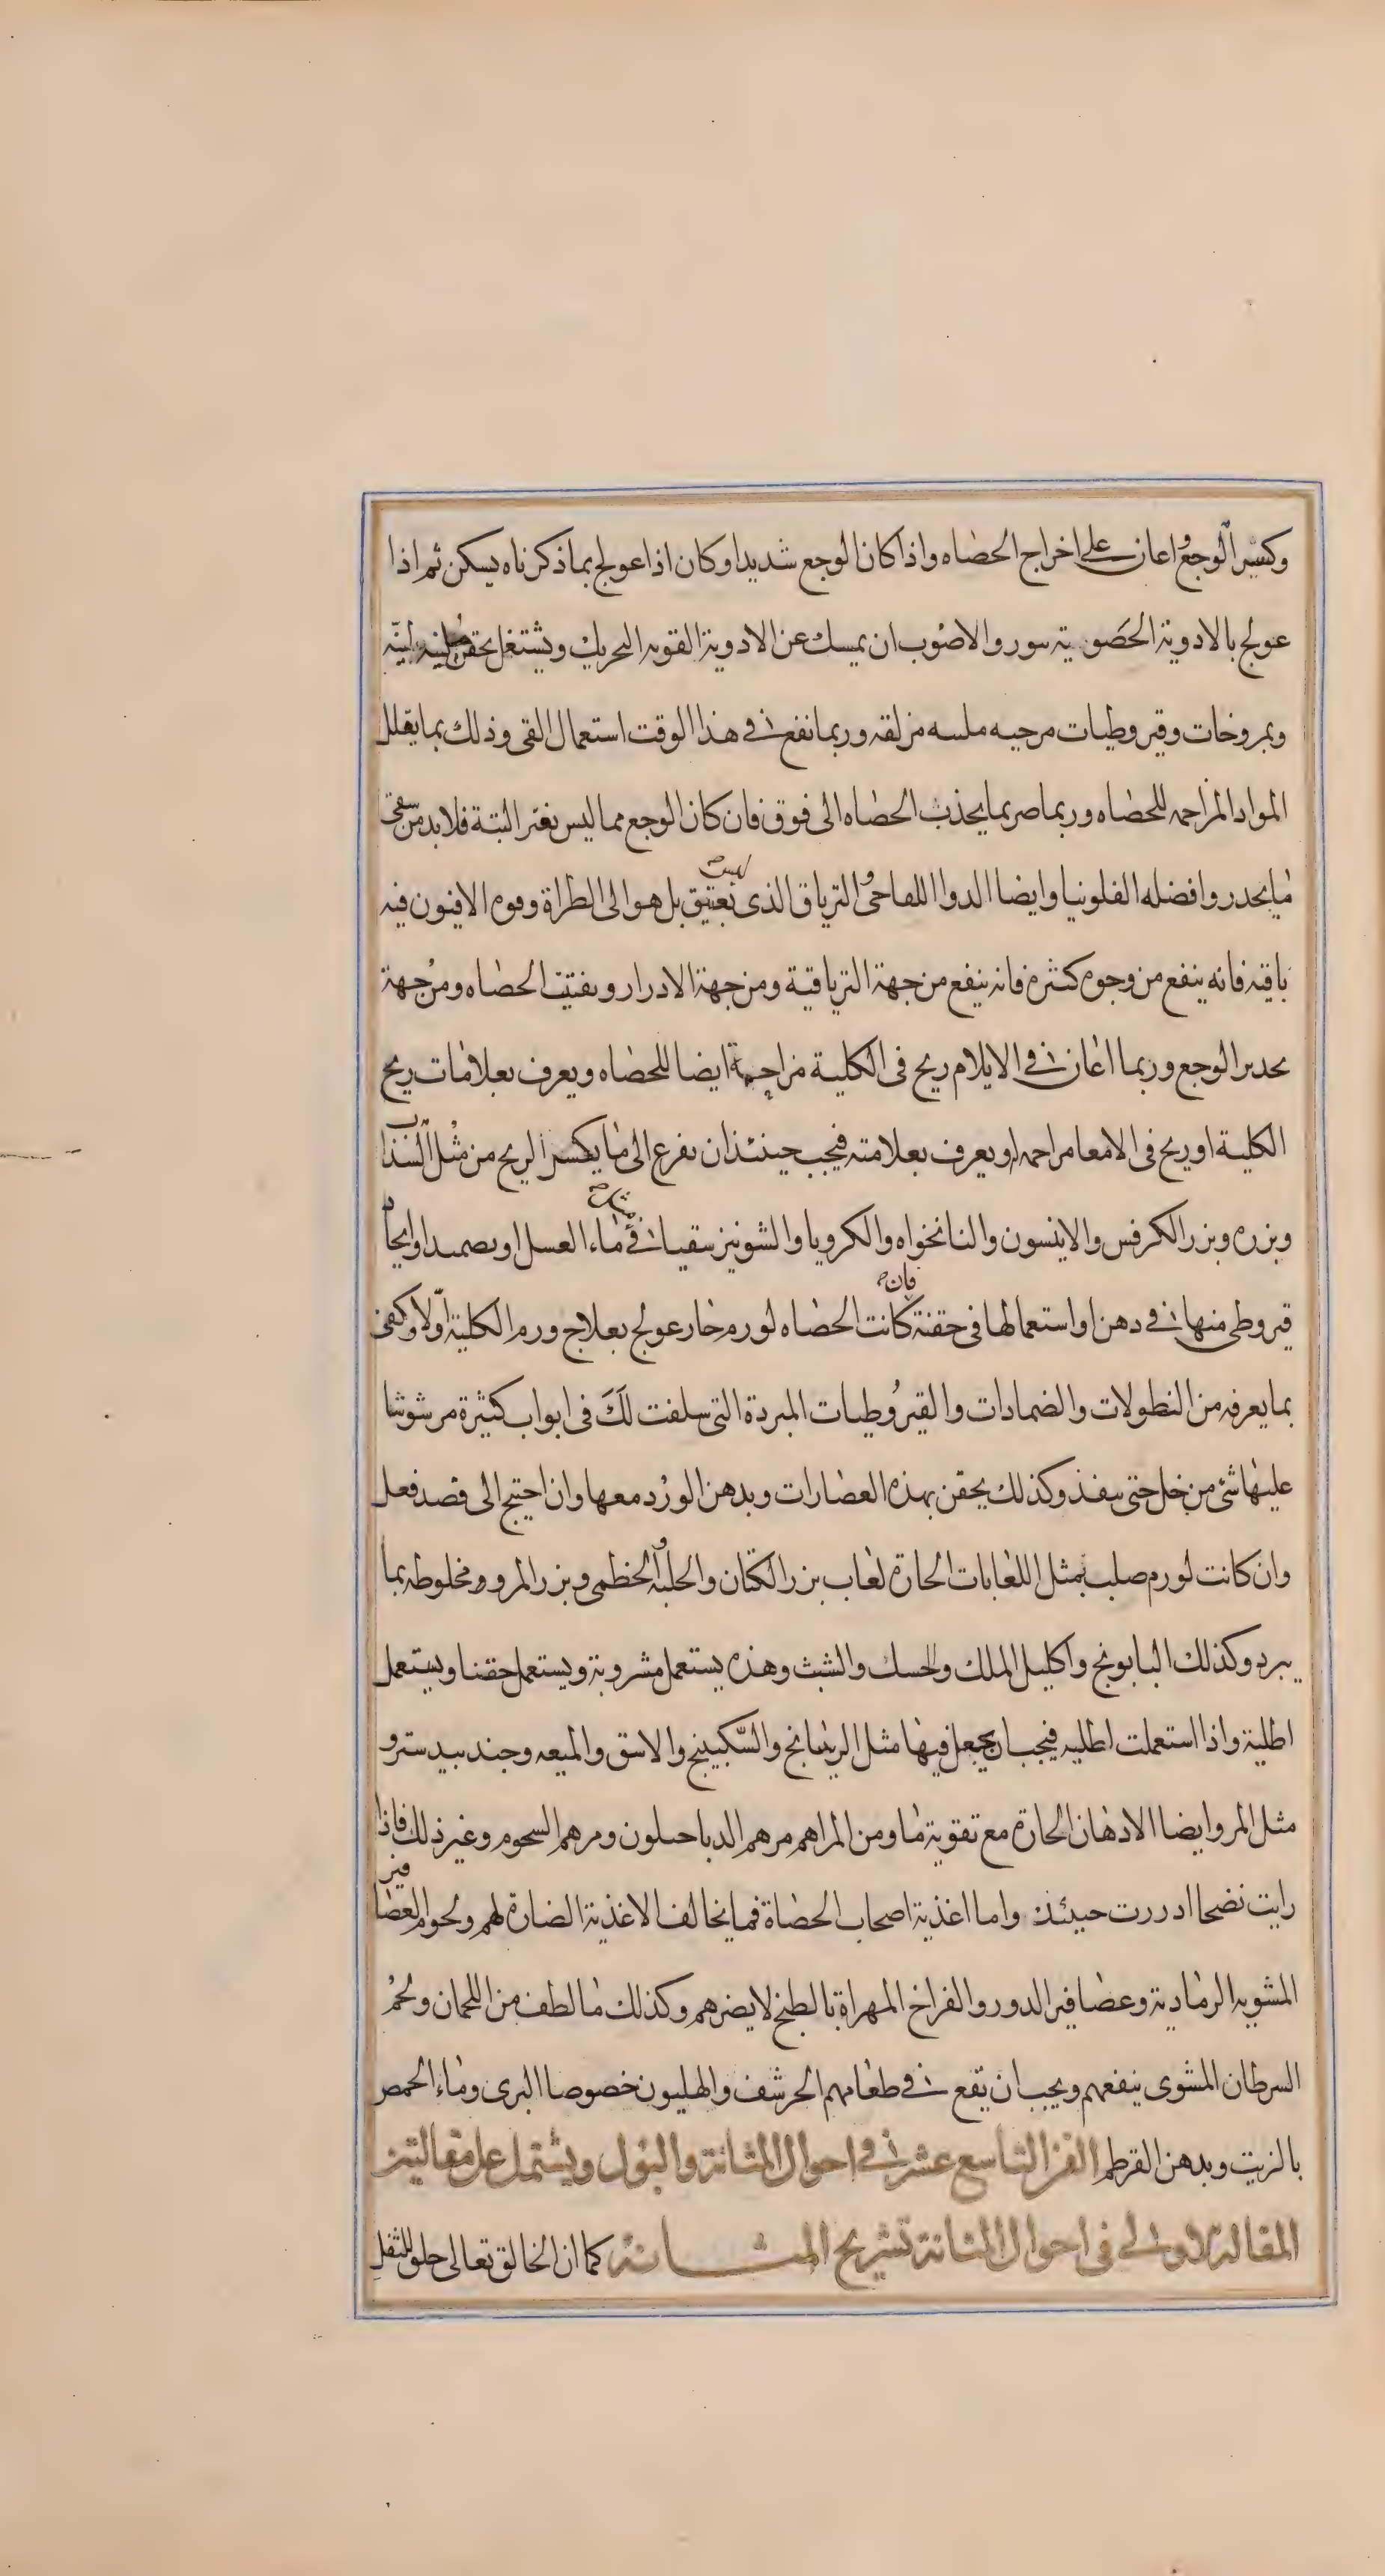 وكسر الوجع واعان على اخراج الحصاه واذا كان الوجع شديدا وكان اذا عولج بما ذكرناه يسكن ثم اذا
عولج بالادوية الحصوية يثور والاصوب ان يمسك عن الادوية القويه التحريك ويشتغل بحقن ملينه لينه
وبمروخات وقيروطيات مرخيه ملسه مزلقه وربما نفع في هذا الوقت استعمال القى وذلك بما يقلل
المواد المزاحمه للحصاه وربما ضر بما يجذب الحصاه الى فوق فان كان الوجع مما ليس يفتر البتة فلابد من سقى
ما يخدر وافضله الفلونيا وايضا الدوا اللفاحى والترياق الذى ليس بعتيق بل هو الى الطراة وقوه الافيون فيه
باقيه فانه ينفع من وجوه كثيره فانه ينفع من جهة الترياقية ومن جهة الادرار وتفتيت الحصاه ومن جهة
تخدير الوجع وربما اعان في الايلام ريح فى الكلية مزاحمة ايضا للحصاه ويعرف بعلامات ريح
الكلية او ريح فى الامعا مزاحمه او يعرف بعلامته فيجب حينئذ ان يفزع الى ما يكسر الريح من مثل السذاب
وبزره وبزر الكرفس والانيسون والنانخواه والكرويا والشونيز سقيا في ماء العسل او تضميدا واتخاذ
قيروطى منها في دهن او استعمالها فى حقنة فان كانت الحصاه لورم حار عولج بعلاج ورم الكلية اولا وكفى
بما يعرفه من النطولات والضمادات والقيروطيات المبردة التى سلفت لك فى ابواب كثيرة مرشوشا
عليها شئ من خل حتى ينفذ وكذلك يحقن بهذه العصارات وبدهن الورد معها وان احتيج الى فصد فعل
وان كانت لورم صلب بمثل اللعابات الحارة لعاب بزر الكتان والحلبه والخظمى وبزر المرو ومخلوطه بما
يبرد وكذلك البابونج واكليل الملك والحسك والشبث وهذه يستعمل مشروبة ويستعمل حقنا ويستعمل
اطلية واذا استعملت اطليه فيجب ان يجعل فيها مثل الريتيانج والسكبينج والاشق والميعه وجندبيدستر و
مثل المر وايضا الادهان الحارة مع تقوية ما ومن المراهم مرهم الدياخيلون ومرهم الشحوم وغير ذلك فاذا
رايت نضجا ادررت حينئذ واما اغذية اصحاب الحصاة فما يخالف الاغذية الضارة لهم ولحوم العصافير
المشويه الرمادية وعصافير الدور والفراخ المهراة بالطبخ لا يضرهم وكذلك ما لطف من اللحمان ولحم
السرطان المشوى ينفعهم ويجب ان يقع في طعامهم الحرشف والهليون خصوصا البرى وماء الحمص
بالزيت وبدهن القرطم الفن التاسع عشر في احوال المثانة والبول ويشتمل على مقالتين
المقالة الاولى فى احوال المثانة تشريح المثانة كما ان الخالق تعالى خلق للثفل